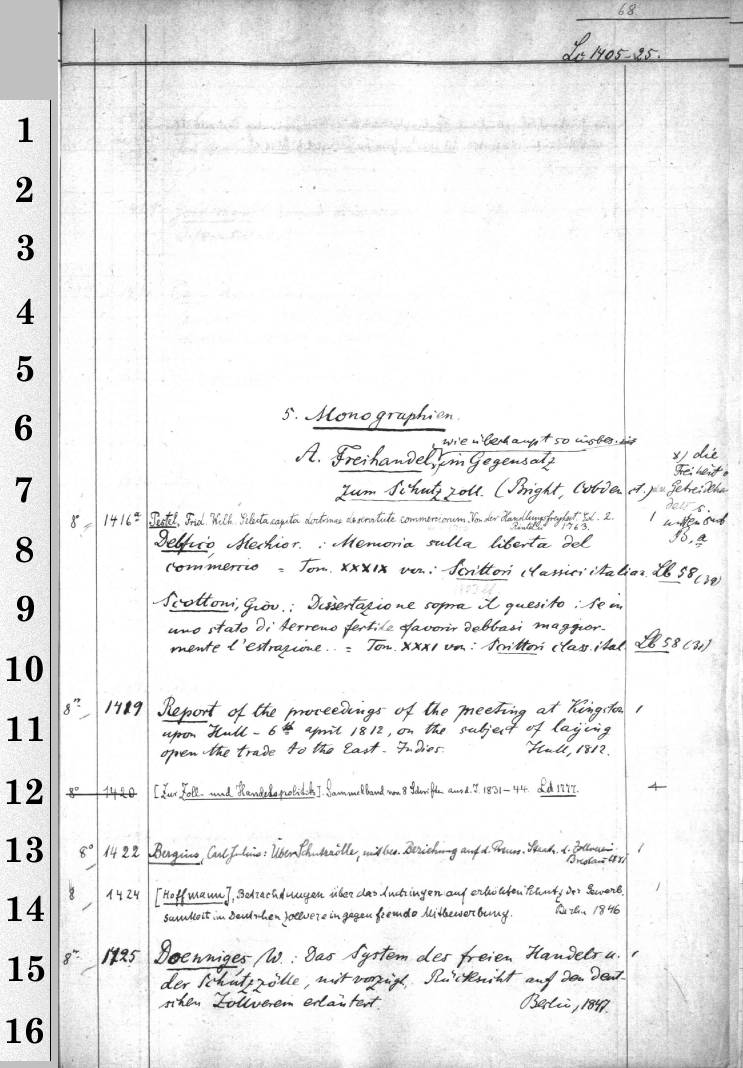 68.
Lo 1405-25.
1
2
3
4
5
6
7
8
9
10
11
12
13
14
15
16
5. Monographien.
wie überhaupt so insbes. mit
A. Freihandel, im Gegensatz
zum Schutzzoll. (Bright, Cobden
x) die
Freiheit
Getreideha
dels s.
unter
8° 1416a Pestel, Frid. Wilh. Selecta capita doctrinae de commerciorum. Von der Handlungsfreyheit. Ed. 2. 1
Rintelii 1763.
Delfico, Melchior. : Memoria sulla liberta del
commercio = Tom. XXXIX von: Scrittori classici italian. Lb 58 (39)
Scottoni, Giov.: Dissertazione sopra il quesito: se in
uno stato di terreno fertile favorir debbasi maggior-
mente l'estrazione.. = Tom. XXXI von: Scrittori class. ital. Lb 58 (31)
8° 1419 Report of the proceedings of the meeting at Kingston 1
upon Hull - 6th april 1812, on the subject of laying
open the trade to the East-Indies. Hull, 1812.
8° 1420 [Zur Zoll- und Handelspolitik]. Sammelband von 8 Schriften aus d. J. 1831-44. Ld 1777. 1
8° 1422 Bergius, Carl Julius: Über Schutzzölle, mit bes. Beziehung auf d. Preuss. Staat u. d. Zollverein. 1
Breslau
8° 1424 [Hoffmann], Betrachtungen über das Andringen auf erhöhten Schutz der Gewerb- 1
samkeit im Deutschen Zollverein gegen fremde Mitbewerbung. Berlin 1846
8° 1425 Doenniges, W.: Das System des freien Handels u. 1
der Schutzzölle, mit vorzügl. Rücksicht auf den deut-
schen Zollverein erläutert. Berlin, 1847.